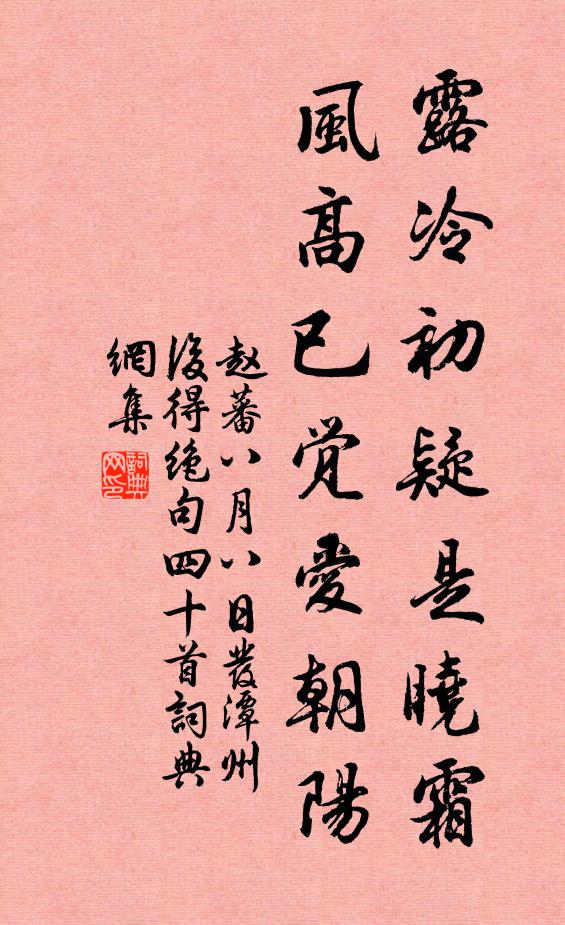 露冷初疑是曉霜
風高已觉愛朝陽
赵蕃八月八日發潭州
後得绝句四十首詞典
網集
詞典网印